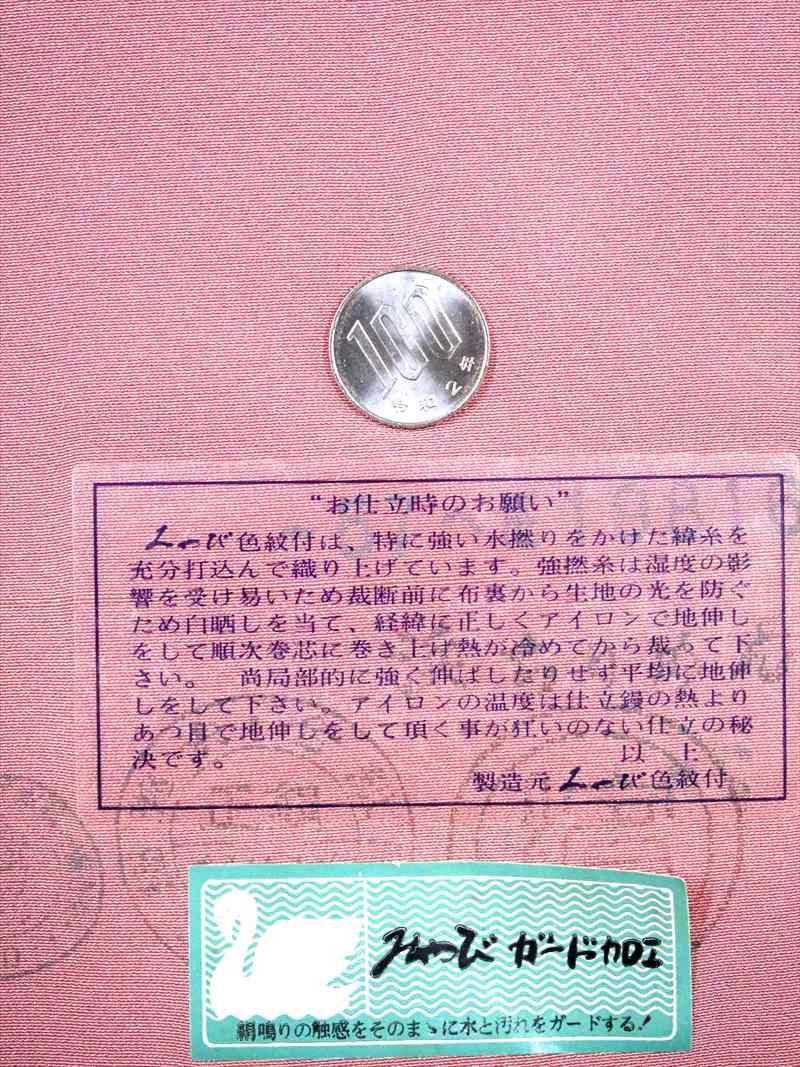 100
令和2年
“お仕立時のお願い”
みやび色紋付は、特に強い水撚りをかけた緯糸を
充分打込んで織り上げています。強撚糸は湿度の影
響を受け易いため裁断前に布裏から生地の光を防ぐ
ため白晒しを当て、経緯に正しくアイロンで地伸し
をして順次巻芯に巻き上げ熱が冷めてから裁って下
さい。 尚局部的に強く伸ばしたりせず平均に地伸
しをして下さい。アイロンの温度は仕立鏝の熱より
あつ目で地伸しをして頂く事が狂いのない仕立の秘
決です。 以上
製造元みやび色紋付
みやび ガード加工
絹鳴りの触感をそのまゝに水と汚れをガードする!